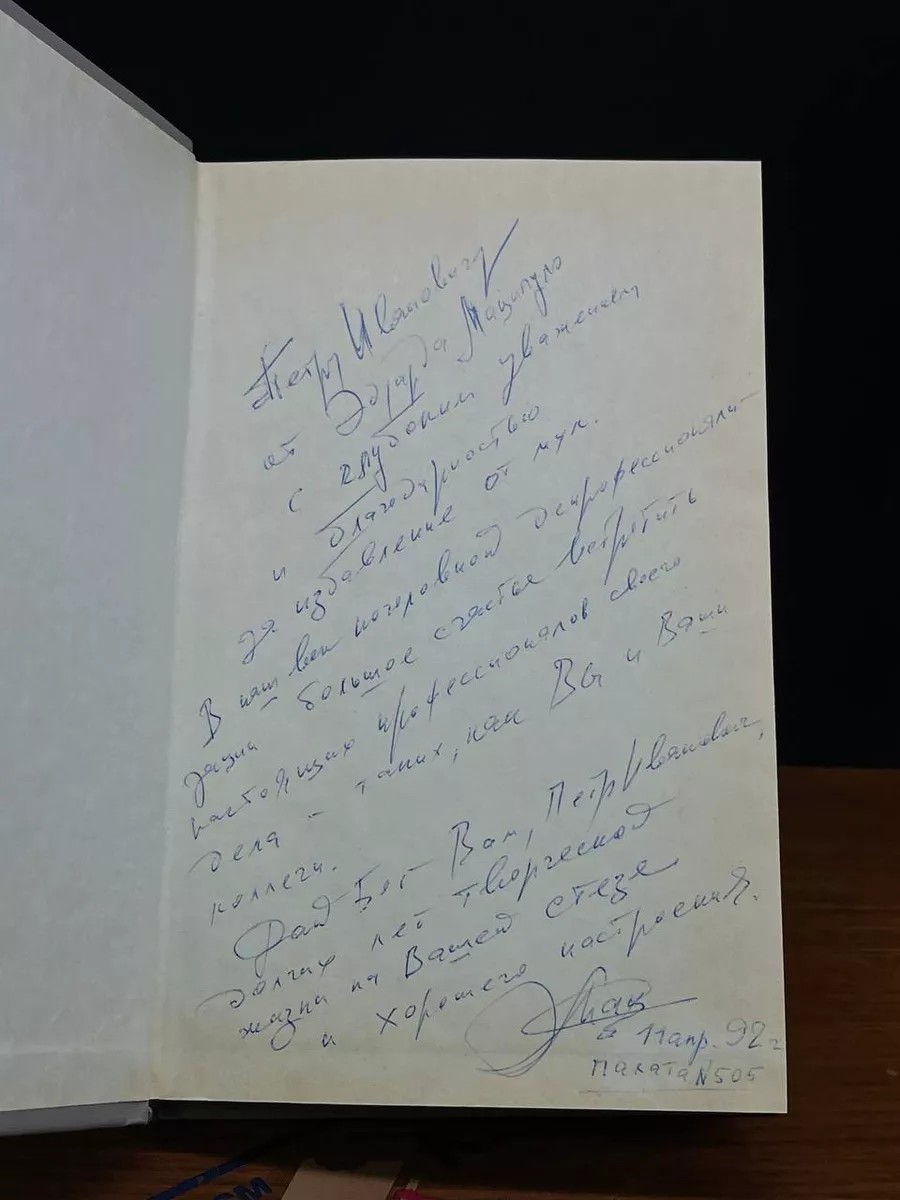 Петру Ивановичу
от Эдуарда Маципуло
с глубоким уважением
и благодарностью
за избавление от мук.
В наш век поголовной депрофессионали-
зации большое счастье встретить
настоящих профессионалов своего
дела – таких, как Вы и Ваши
коллеги.
Дай Бог Вам, Петр Иванович,
долгих лет творческой
жизни на Вашей стезе
и хорошего настроения.
ЭМац
11 апр. 92 г
палата N505